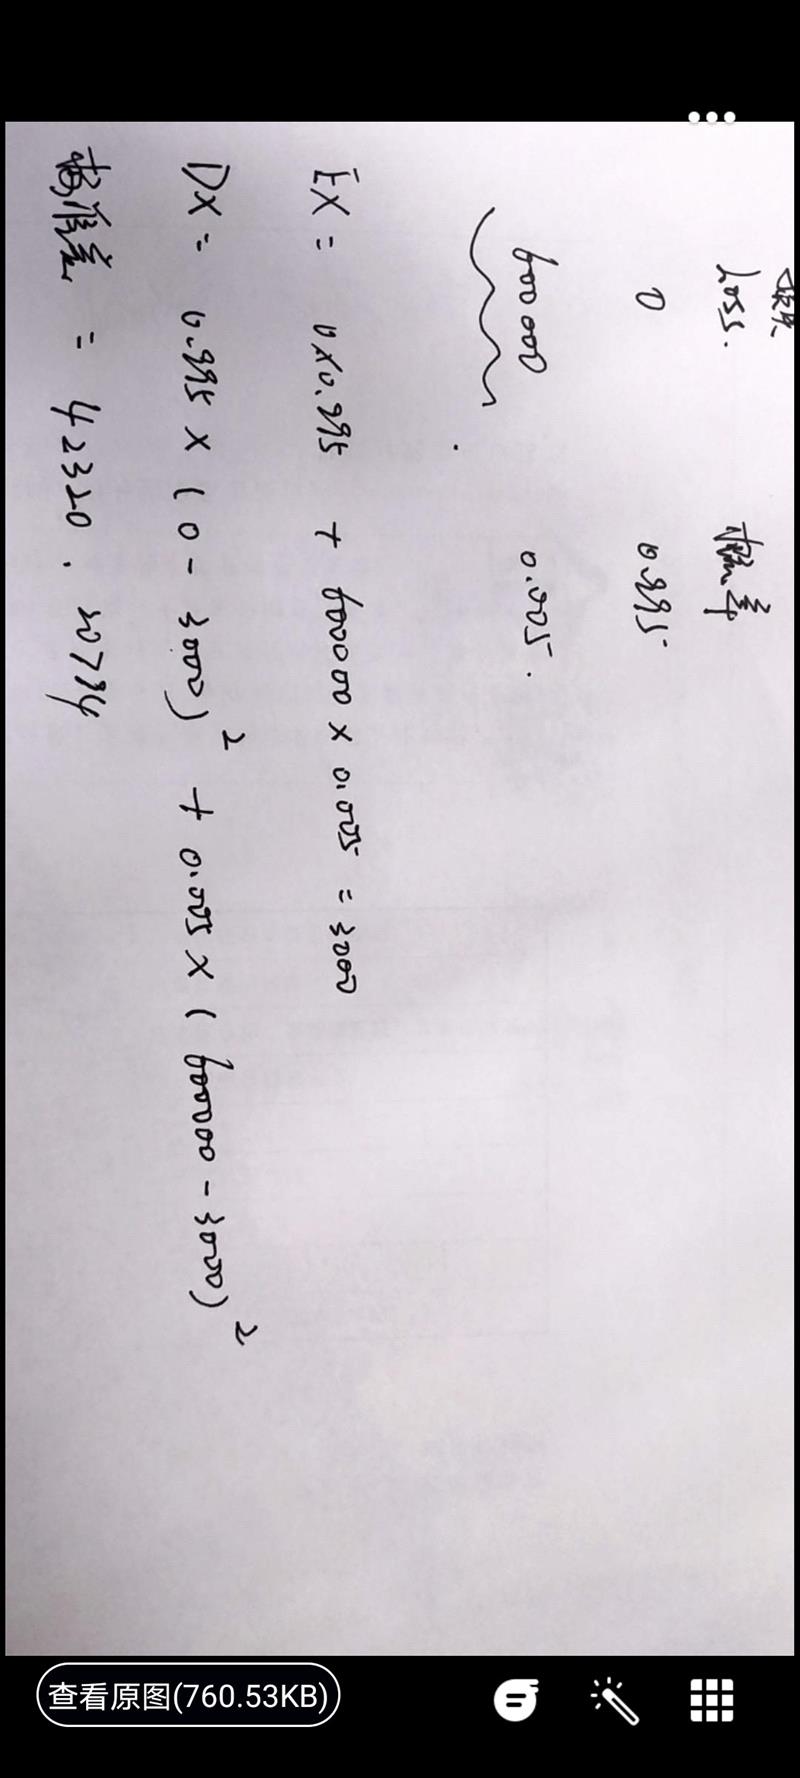 损失 概率
Loss.
0 0.995
600000 0.005.
EX = 0×0.995 + 600000 × 0.005 = 3000
DX = 0.995 × (0 - 3000)² + 0.005 × (600000 - 3000)²
标准差 = 42320.20794
查看原图(760.53KB)